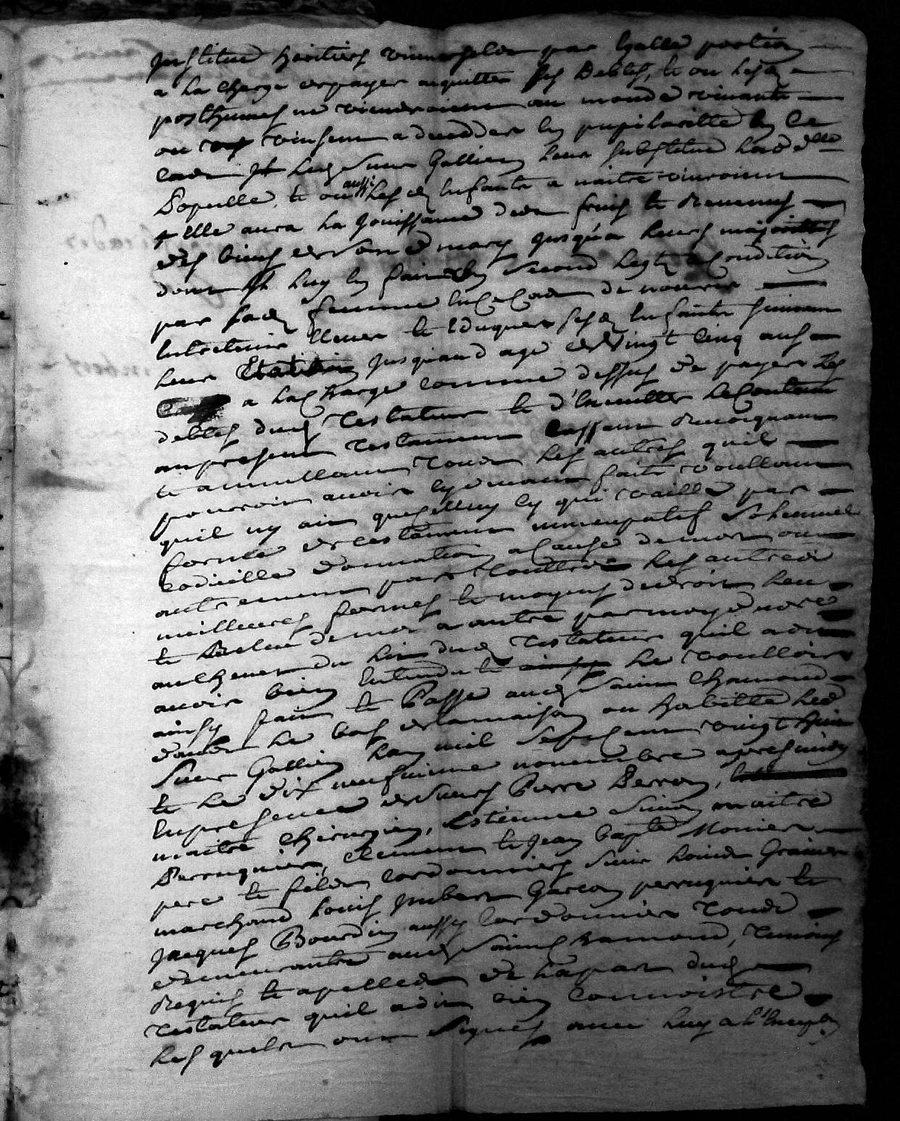 institue heritiers universelles par egalle portion
a la charge de payer acquitter ses debtes, et ou lesd
posthumes ne viendroient au monde vivants
ou viensent a deceder en pupilarité en ce
cas led sieur Gallien leur substitue lad delle
Popuelle, et ou aussy lesd enfants a naitre vivroient
elle aura la jouissance des fruits et revenus
des biens de son d mary jusqua leurs majorités
dont il luy en fait legs a condition
par lad femme en ce cas de nourrir
entretenir ellever et eduquer sesd enfants suivant
leur jusquand age de vingt cinq ans
a la charge comme dessus de payer les
debtes dud testateur et d'executer le contenu
au present testament cassant revoquant
et annullant tous les autres quil
pourroit avoir cy devant fait voullant
quil ny ait que celluy cy qui vaille par
forme de testament nuncupatif solemnel
codicille donnation a cause de mort ou
autrement par toutes les autres
meilleures formes et moyens de droit leu
et relu de mot a autre par moyd nore
au lieu dud testateur quil a dit
avoir bien entendu et le voulloir
ainsy fait et passé aud Saint Chamond
dans le bas de la maison ou habitte led
sieur Gallien lan mil sept cent vingt huit
et le dix neufvieme novembre apres midy
en presence de sieurs Pierre Perron,
maitre chirurgien, Estienne maitre
perruquier, Clement et Jean Bapte Monier
pere et fils cordonniers, sieur Louis Granier
marchand Louis Imbert garcon perruquier et
Jacques Bourdin aussy cordonnier tous
demeurants aud Saint Chamond, temoins
requis et apelles de la part dud
testateur quil a dit bien connoistre
lesquels ont signés avec luy a l'exception